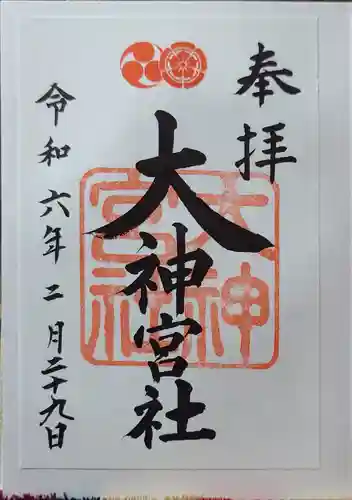 奉拝
大神宮社
大神
宮社
令和六年二月二十九日